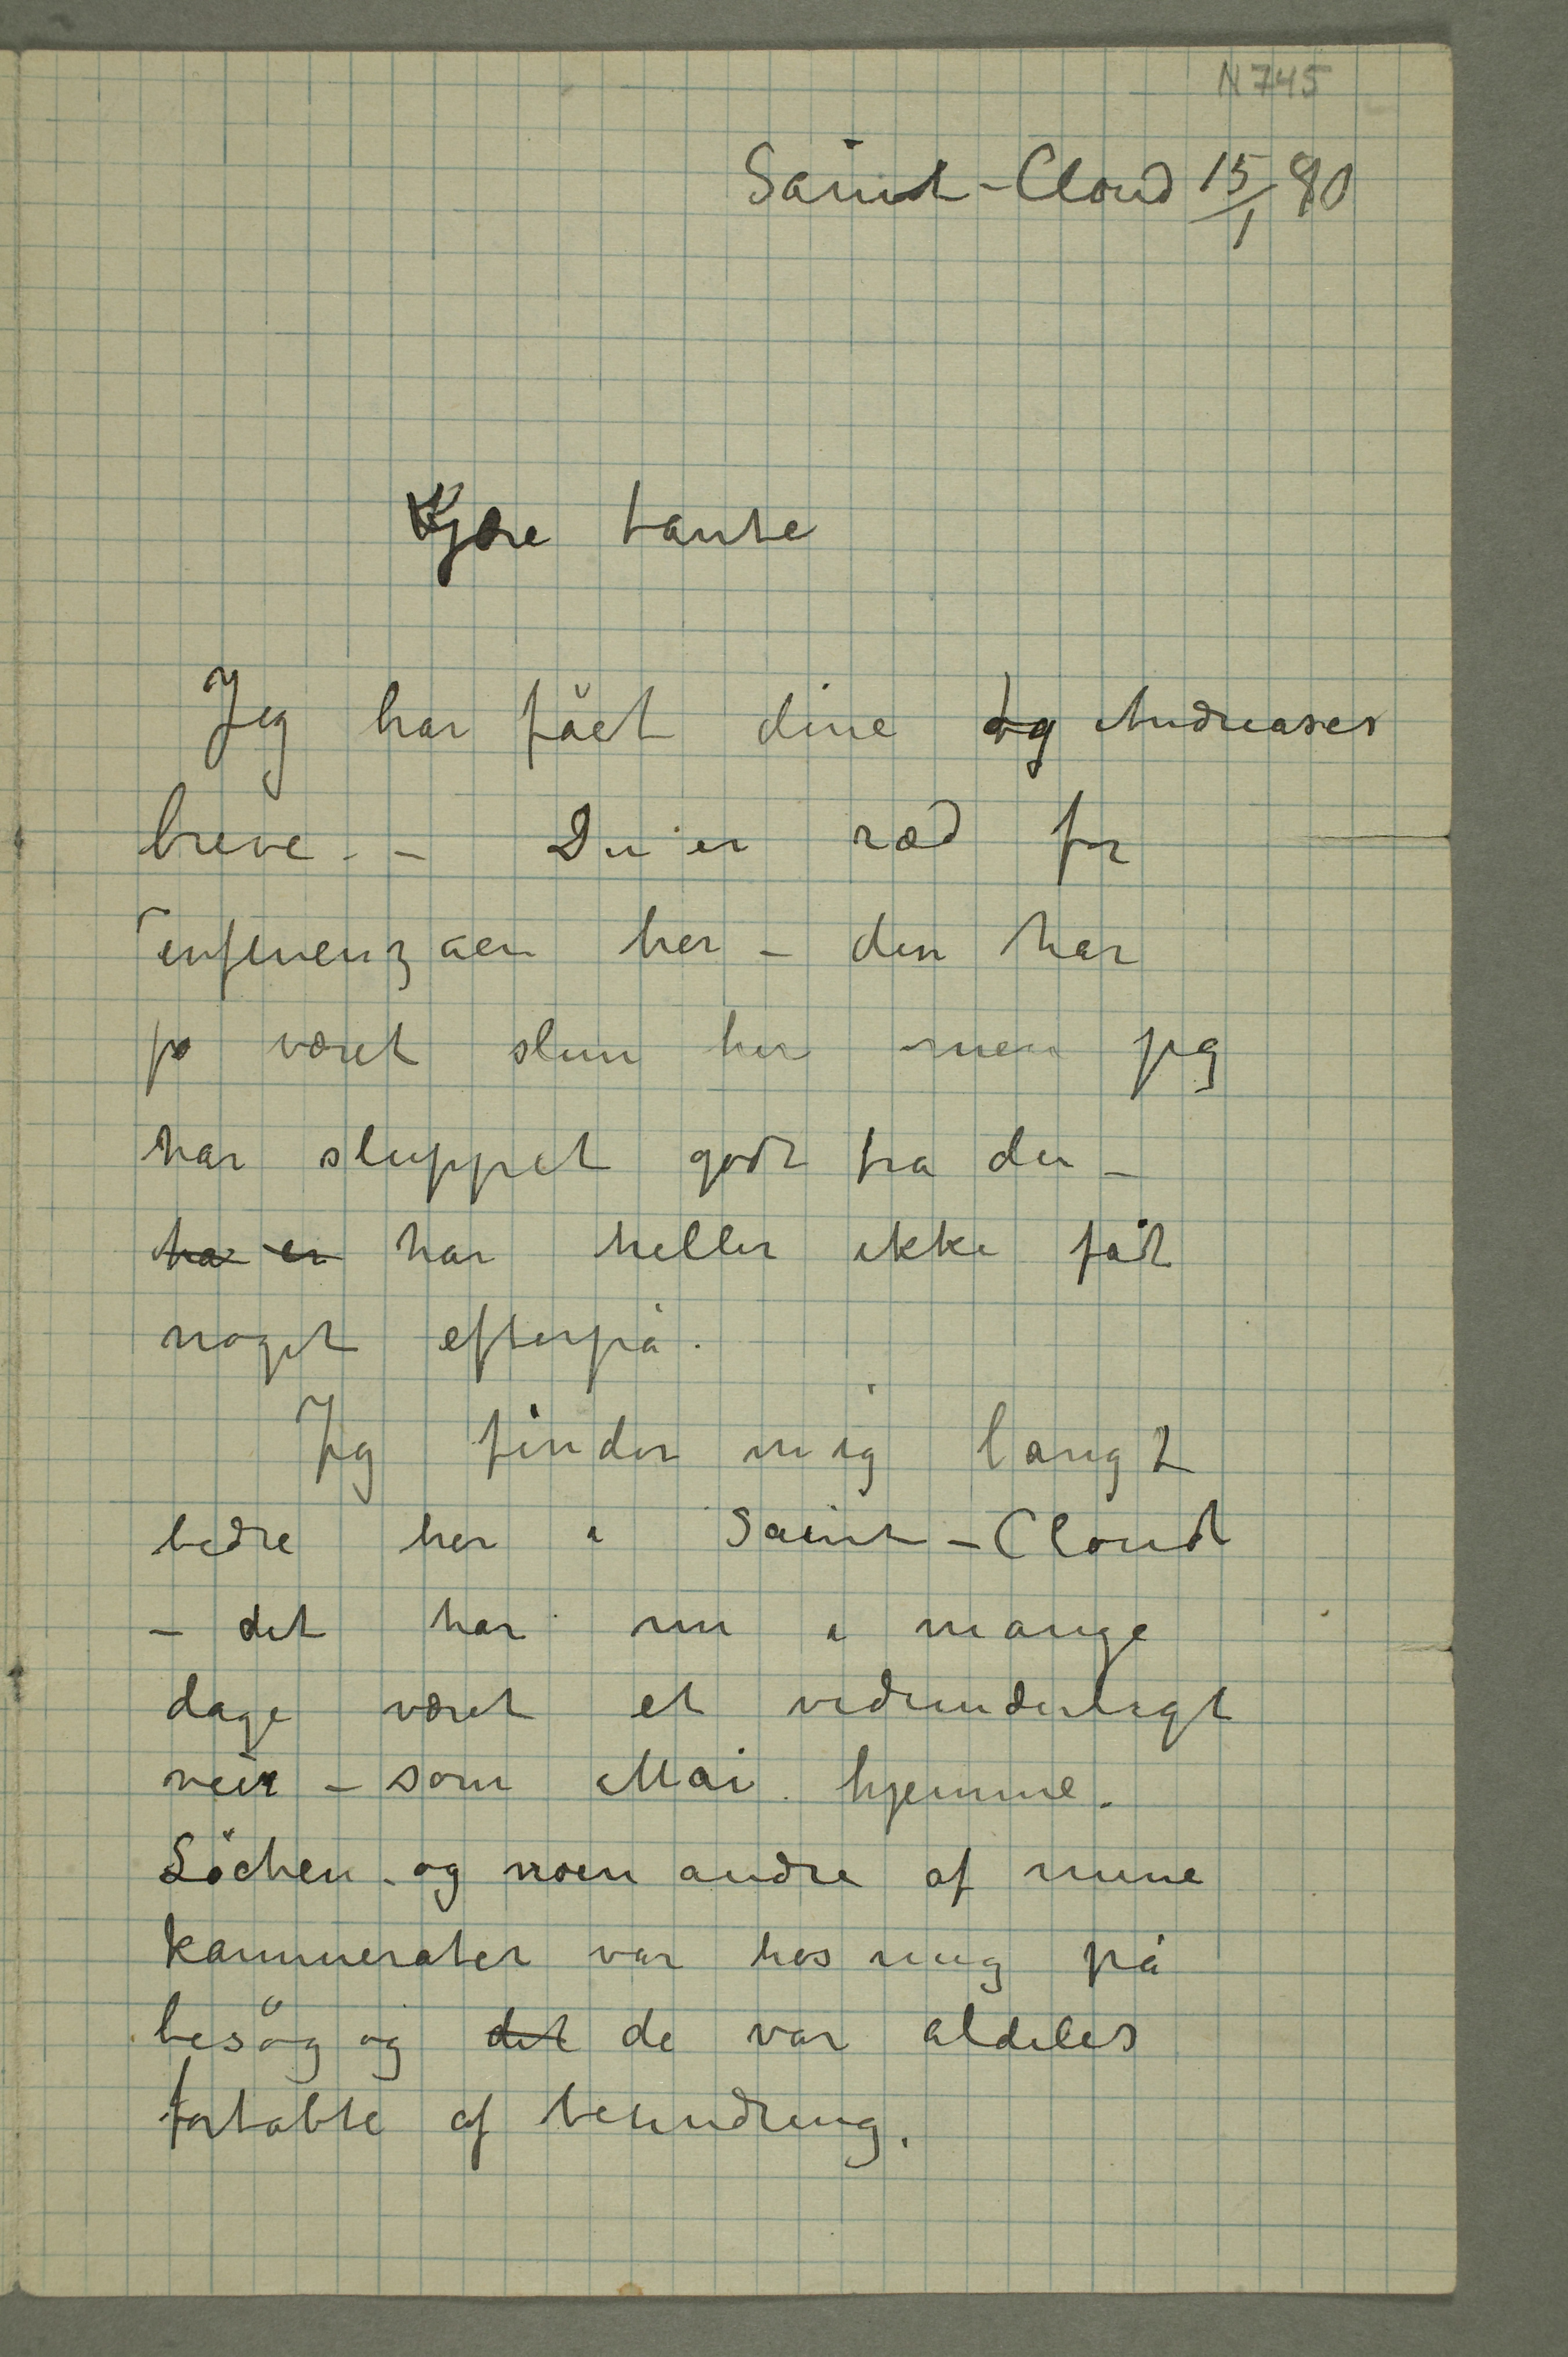 N 745
Saint-Cloud 15/1 90
Kjære tante
Jeg har fået dine og Andreases
breve. – Du er ræd for
influenzaen her – den har
jo været slem her men jeg
har sluppet godt fra den –
ha er har heller ikke fåt
noget efterpå.
Jeg finder mig langt
bedre her i Saint-Cloud
– det har nu i mange
dage været et vidunderligt
veir – som Mai hjemme.
Löchen og noen andre af mine
kammerater var hos mig på
besög og det de var aldeles
fortabte af beundring.